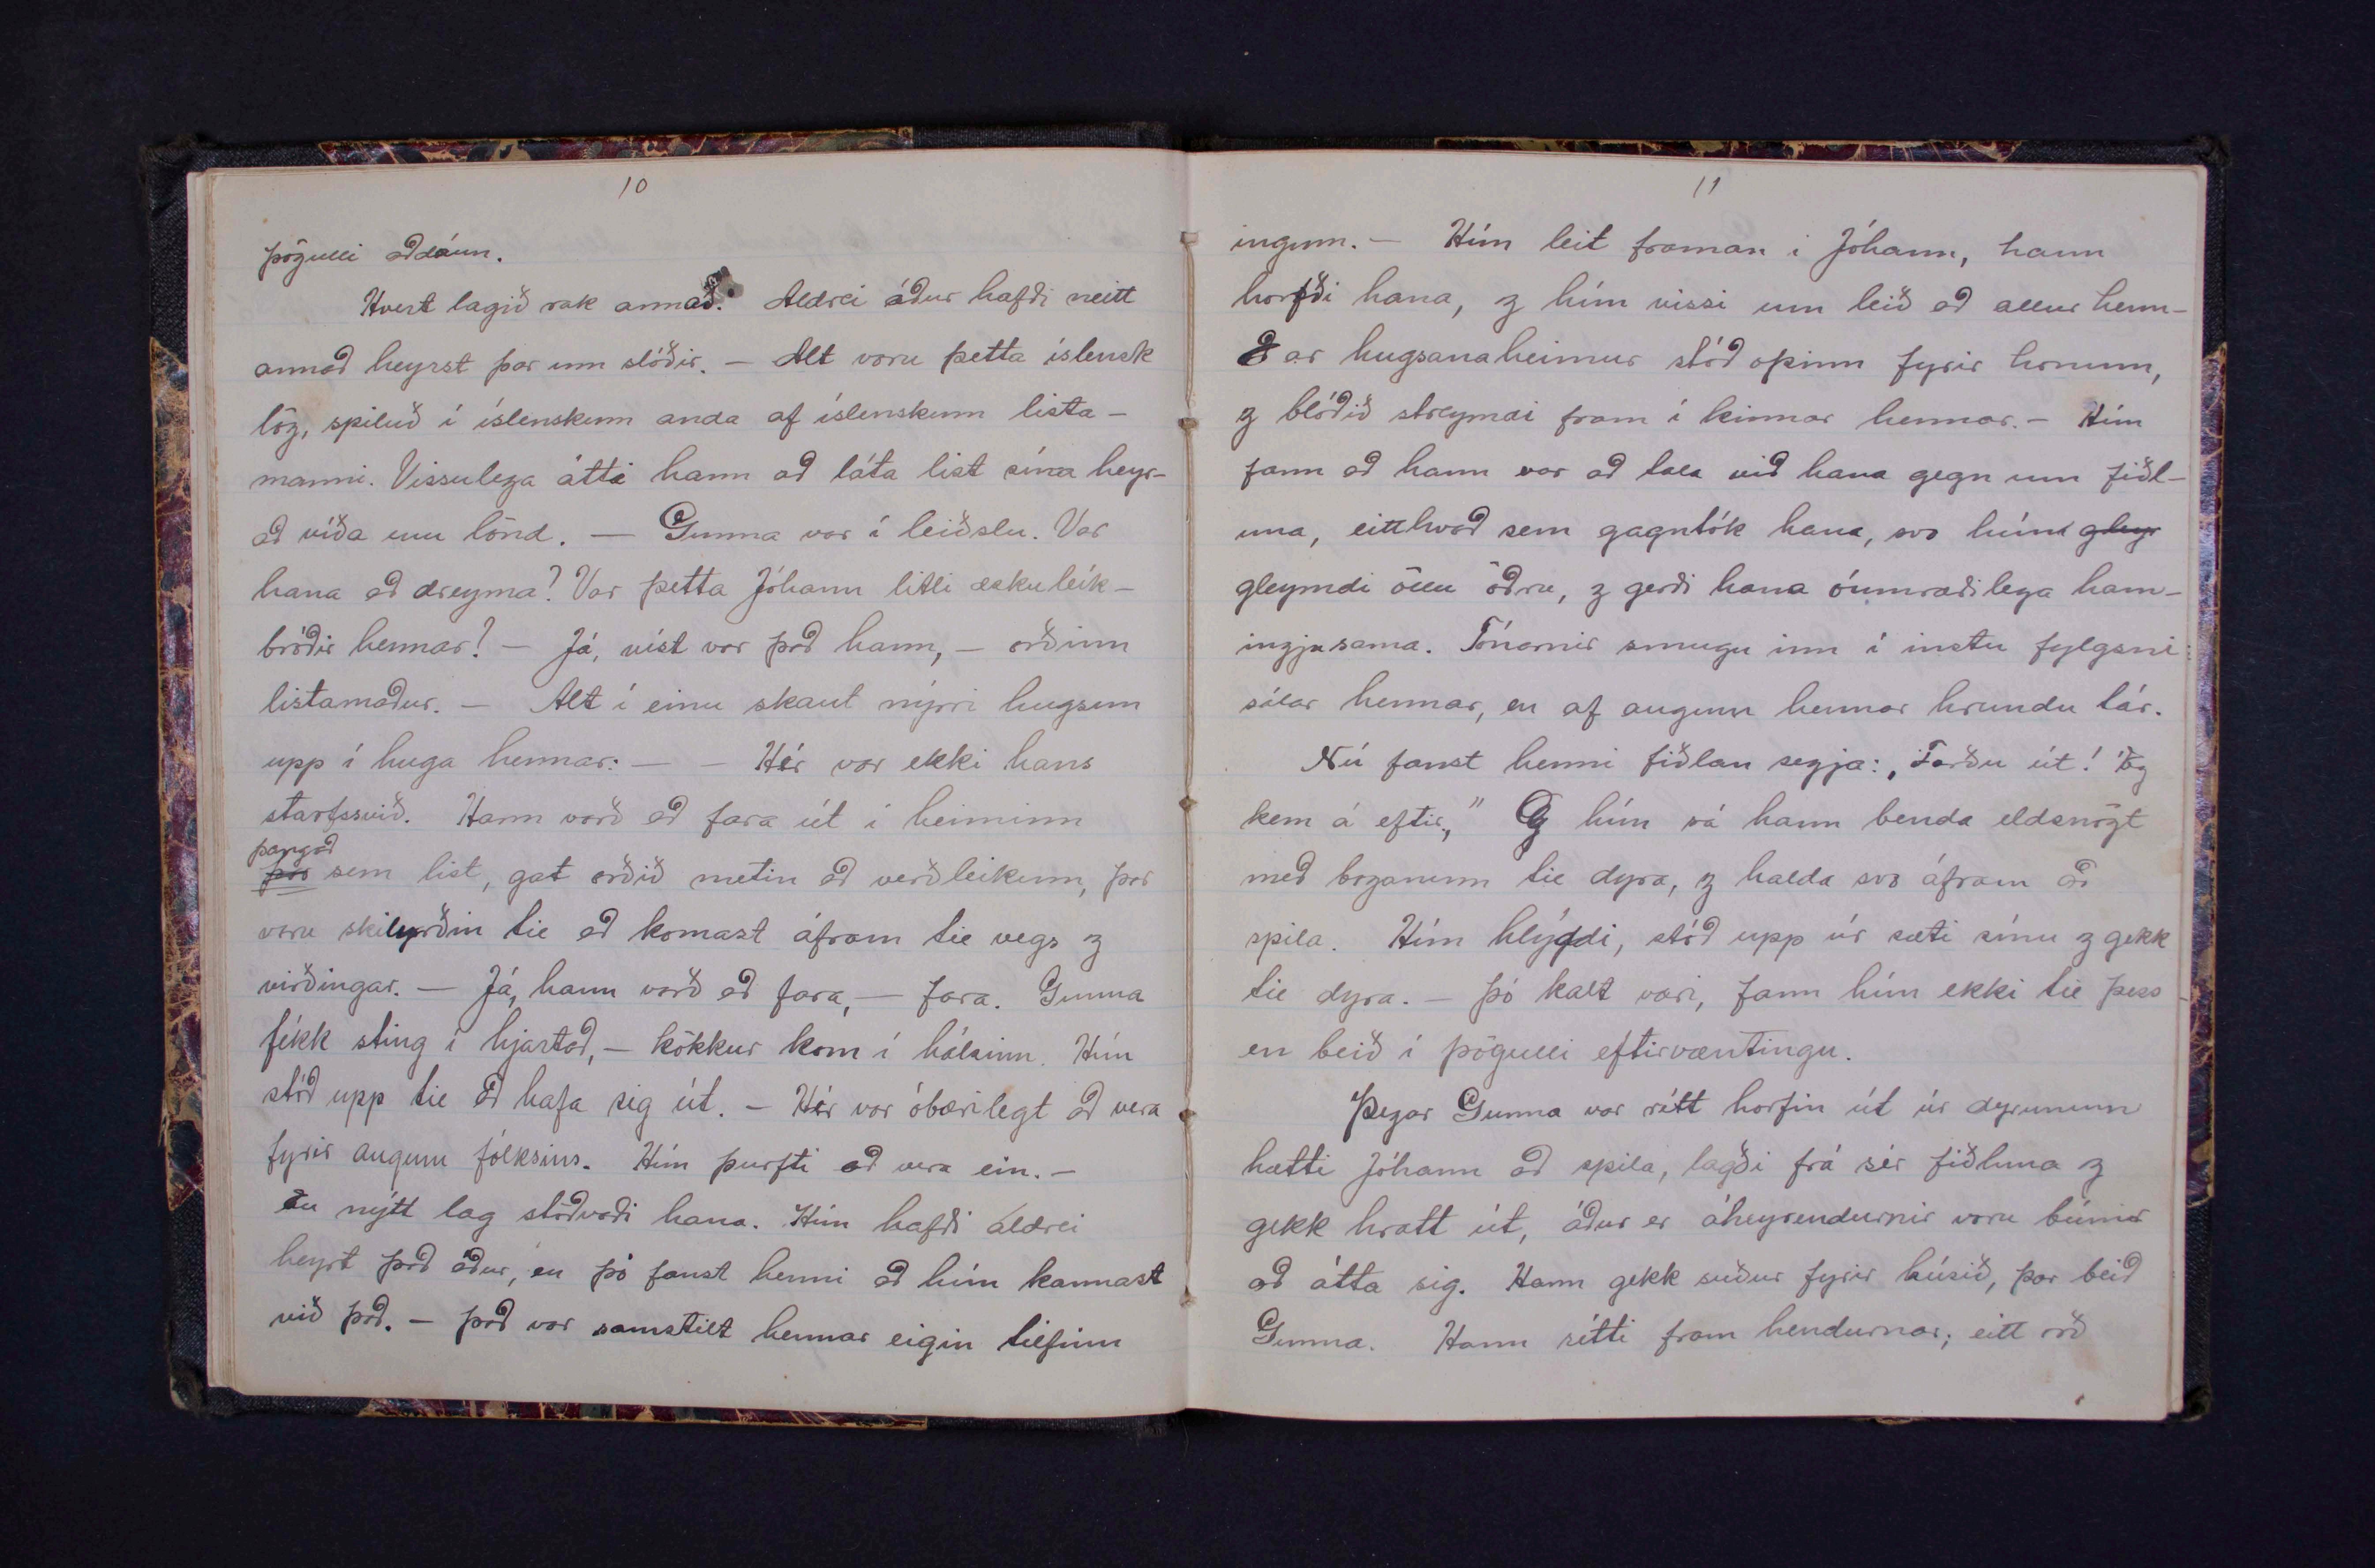 10
þögulli aðdáun.
Hvert lagið rak annað. Aldrei áður hafði neitt
annað heyrst þar um slóðir. – Alt voru þetta íslensk
lög, spiluð í íslenskum anda af íslenskum lista-
manni. Vissulega átti hann að láta list sína heyr-
að víða um lönd. — Gunna var í leiðslu. Var
hana að dreyma? Var þetta Jóhann litli æskuleik-
bróðir hennar? – Já, víst var það hann, – orðinn
listamaður. – Alt í einu skaut nýrri hugsun
upp í huga hennar: – – Hér var ekki hans
starfssvið. Hann varð að fara út í heiminn
þangað
þar sem list, gat orðið metin að verðleikum, þar
voru skilyrðin til að komast áfram til vegs og
virðingar. — Já, hann varð að fara, — fara. Gunna
fékk sting í hjartað, – kökkur kom í hálsinn. Hún
stóð upp til að hafa sig út. – Hér var óbærilegt að vera
fyrir augum fólksins. Hún þurfti að vera ein. –
En nýtt lag stöðvaði hana. Hún hafði aldrei
heyrt það áður, en þó fanst henni að hún kannast
við það. – það var samstilt hennar eigin tilfinn
11
ingum. – Hún leit framan í Jóhann, hann
horfði hana, og hún vissi um leið að allur henn-
ar hugsanaheimur stóð opinn fyrir honum,
og blóðið streymdi fram í kinnar hennar. – Hún
fann að hann var að tala við hana gegn um fiðl-
una, eitthvað sem gagntók hana, svo hún gleyr
gleymdi öllu öðru, og gerði hana óumræðilega ham-
ingjusama. Tónarnir smugu inn í instu fylgsni
sálar hennar, en af augum hennar hrundu tár.
Nú fanst henni fiðlan segja: „Farðu út! Ég
kem á eftir,“ Og hún sá hann benda eldsnögt
með boganum til dyra, og halda svo áfram að
spila. Hún hlýddi, stóð upp úr sæti sínu og gekk
til dyra. – Þó kalt væri, fann hún ekki til þess –
en beið í þögulli eftirvæntingu.
Þegar Gunna var rétt horfin út úr dyrunum
hætti Jóhann að spila, lagði frá sér fiðluna og
gekk hratt út, áður er áheyrendurnir voru búnir
að átta sig. Hann gekk suður fyrir húsið, þar beið
Gunna. Hann rétti fram hendurnar; eitt orð